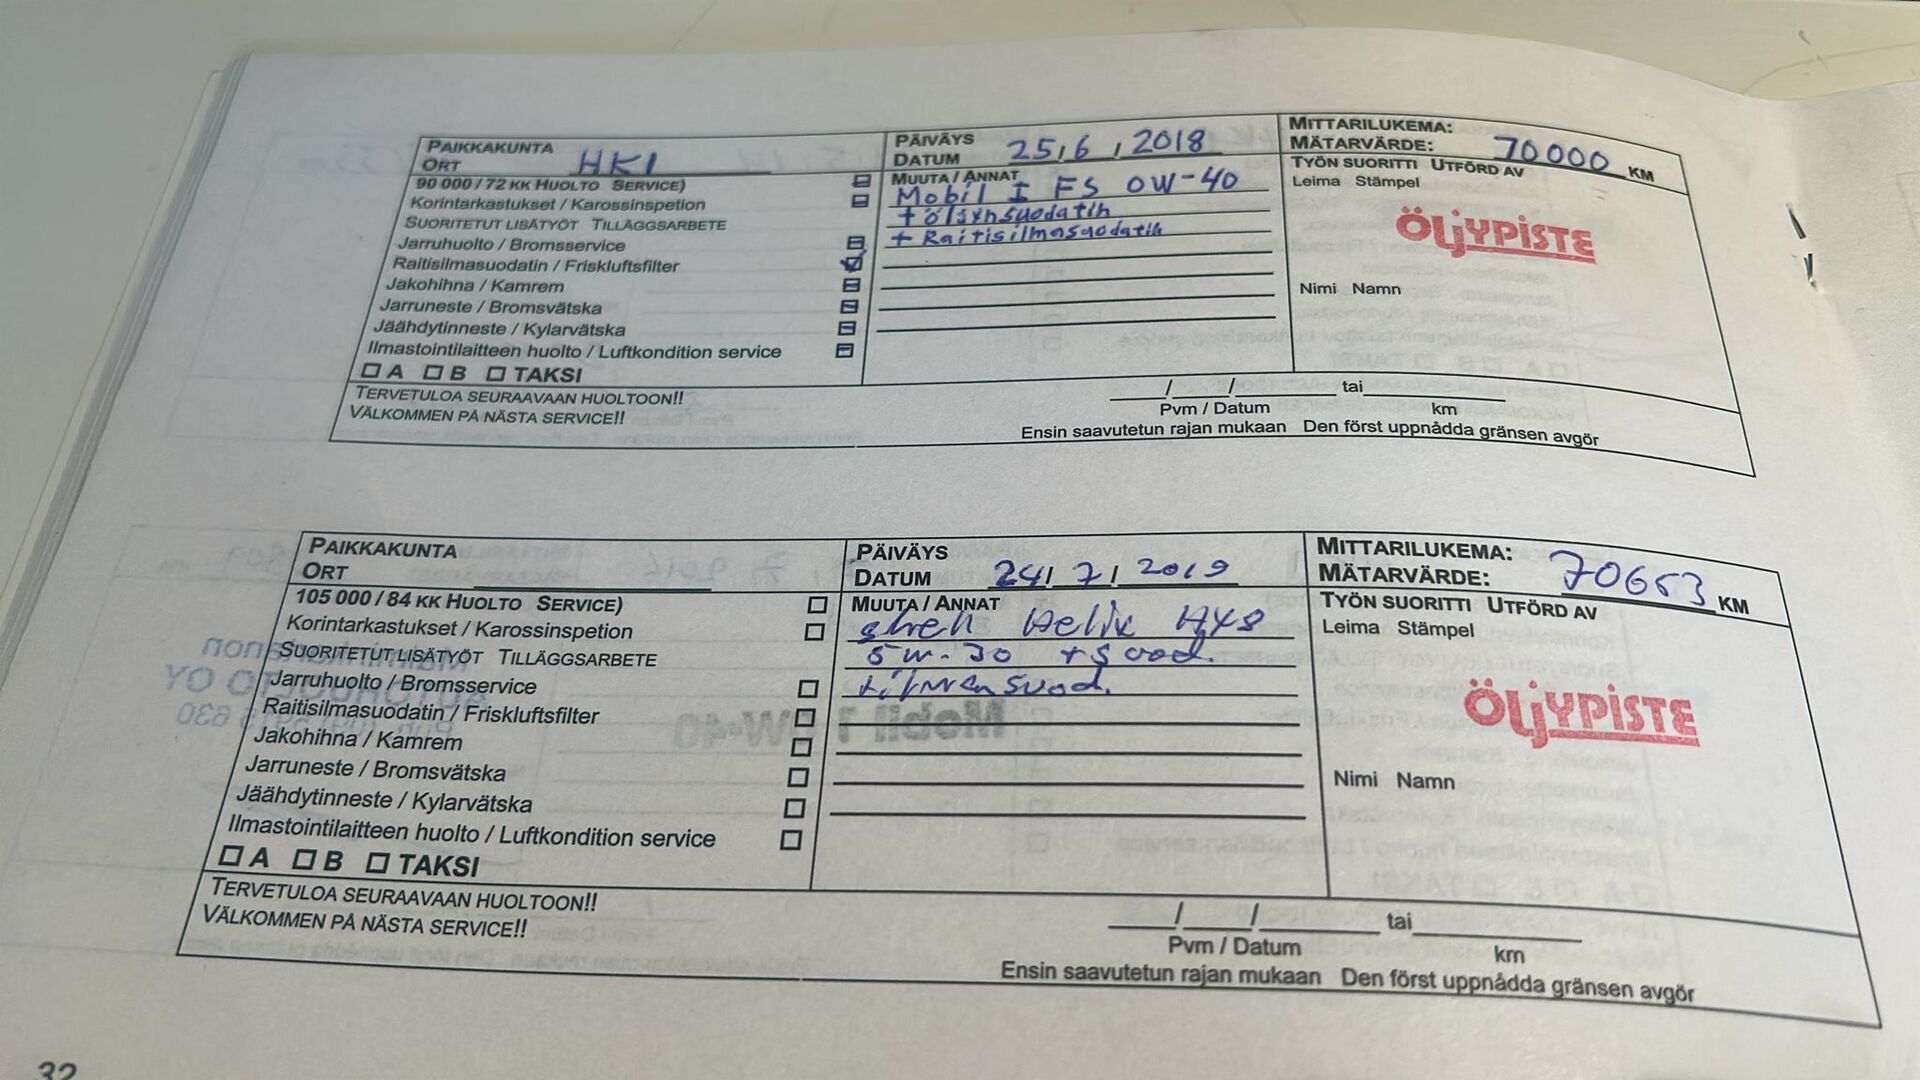 PAIKKAKUNTA
ORT HKI
PÄIVÄYS
DATUM 25/6/2018
MITTARILUKEMA:
MÄTARVÄRDE: 70000 KM
90 000 / 72 KK HUOLTO SERVICE)
Korintarkastukset / Karossinspetion
SUORITETUT LISÄTYÖT TILLÄGGSARBETE
Jarruhuolto / Bromsservice
Raitisilmasuodatin / Friskluftsfilter
Jakohihna / Kamrem
Jarruneste / Bromsvätska
Jäähdytinneste / Kylarvätska
Ilmastointilaitteen huolto / Luftkondition service
A B TAKSI
MUUTA / ANNAT
Mobil 1 FS 0W-40
+ öljynsuodatin
+ Raitisilmasuodatin
TYÖN SUORITTI UTFÖRD AV
Leima Stämpel
ÖLJYPISTE
Nimi Namn
TERVETULOA SEURAAVAAN HUOLTOON!!
VÄLKOMMEN PÅ NÄSTA SERVICE!!
/ / tai
Pvm / Datum km
Ensin saavutetun rajan mukaan Den först uppnådda gränsen avgör
PAIKKAKUNTA
ORT
PÄIVÄYS
DATUM 24/7/2019
MITTARILUKEMA:
MÄTARVÄRDE: 70653 KM
105 000 / 84 KK HUOLTO SERVICE)
Korintarkastukset / Karossinspetion
SUORITETUT LISÄTYÖT TILLÄGGSARBETE
Jarruhuolto / Bromsservice
Raitisilmasuodatin / Friskluftsfilter
Jakohihna / Kamrem
Jarruneste / Bromsvätska
Jäähdytinneste / Kylarvätska
Ilmastointilaitteen huolto / Luftkondition service
A B TAKSI
MUUTA / ANNAT
Shell Helix HX8
5W-30 + suod.
+ ilmansuod.
TYÖN SUORITTI UTFÖRD AV
Leima Stämpel
ÖLJYPISTE
Nimi Namn
TERVETULOA SEURAAVAAN HUOLTOON!!
VÄLKOMMEN PÅ NÄSTA SERVICE!!
/ / tai
Pvm / Datum km
Ensin saavutetun rajan mukaan Den först uppnådda gränsen avgör
32